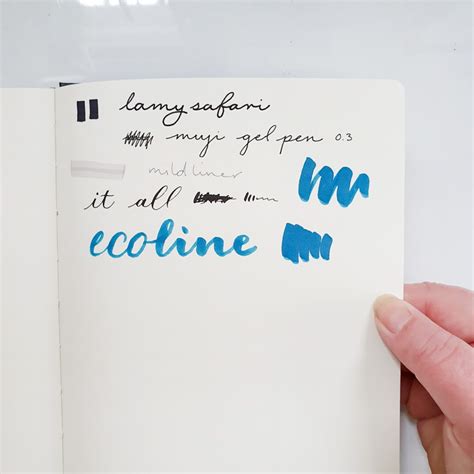 lamy safari
muji gel pen 0.3
mildliner
it all
ecoline